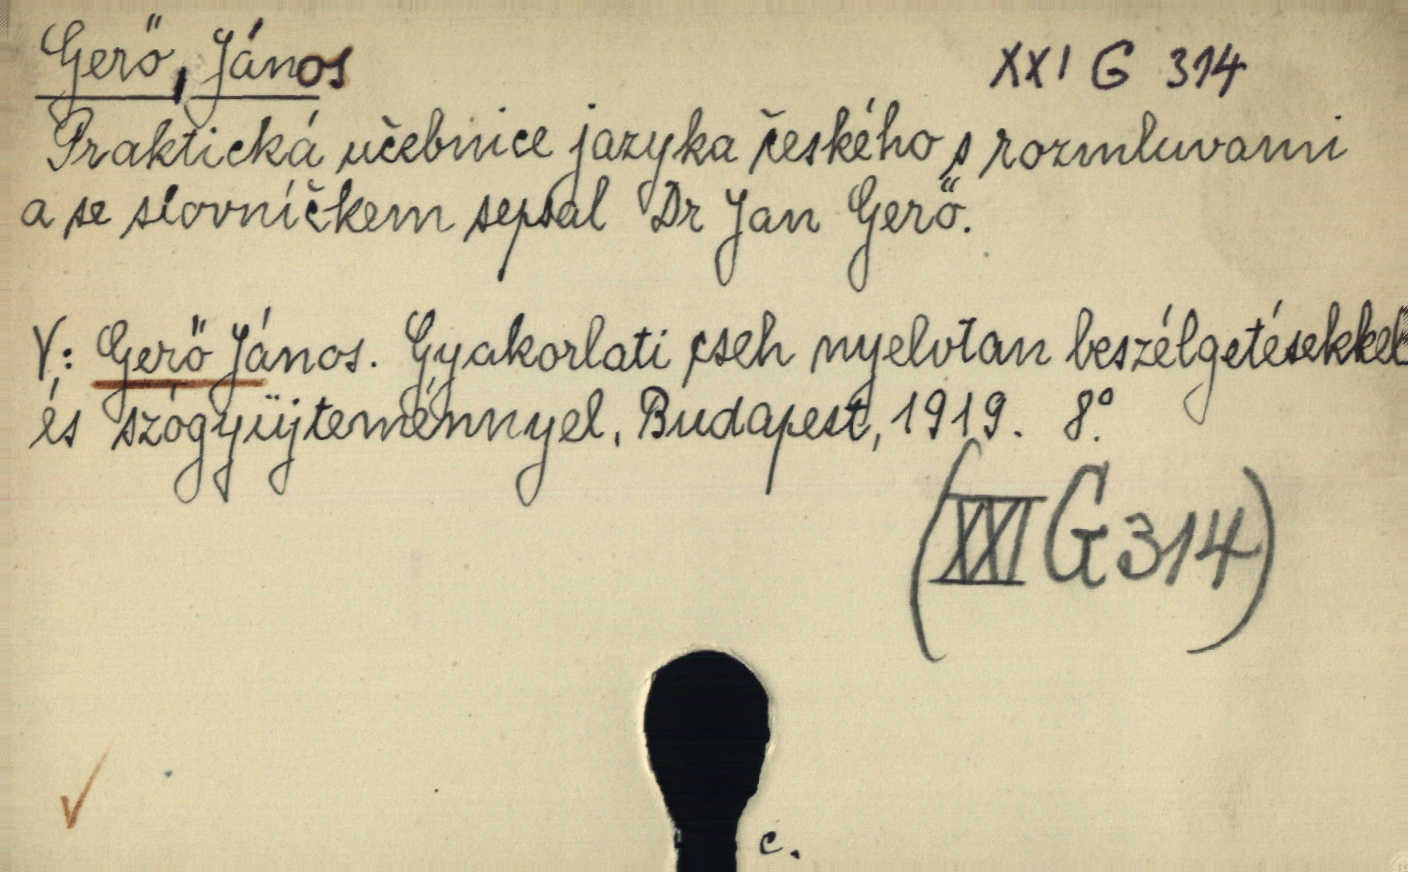 Gerő, János
XXI G 314
Praktická učebnice jazyka českého s rozmluvami
a se slovníčkem sepsal Dr Jan Gerő.
V.: Gerő János. Gyakorlati cseh nyelvtan beszélgetésekkel
és szógyüjteménnyel, Budapest, 1919. 8°.
(XXI G 314)
c.